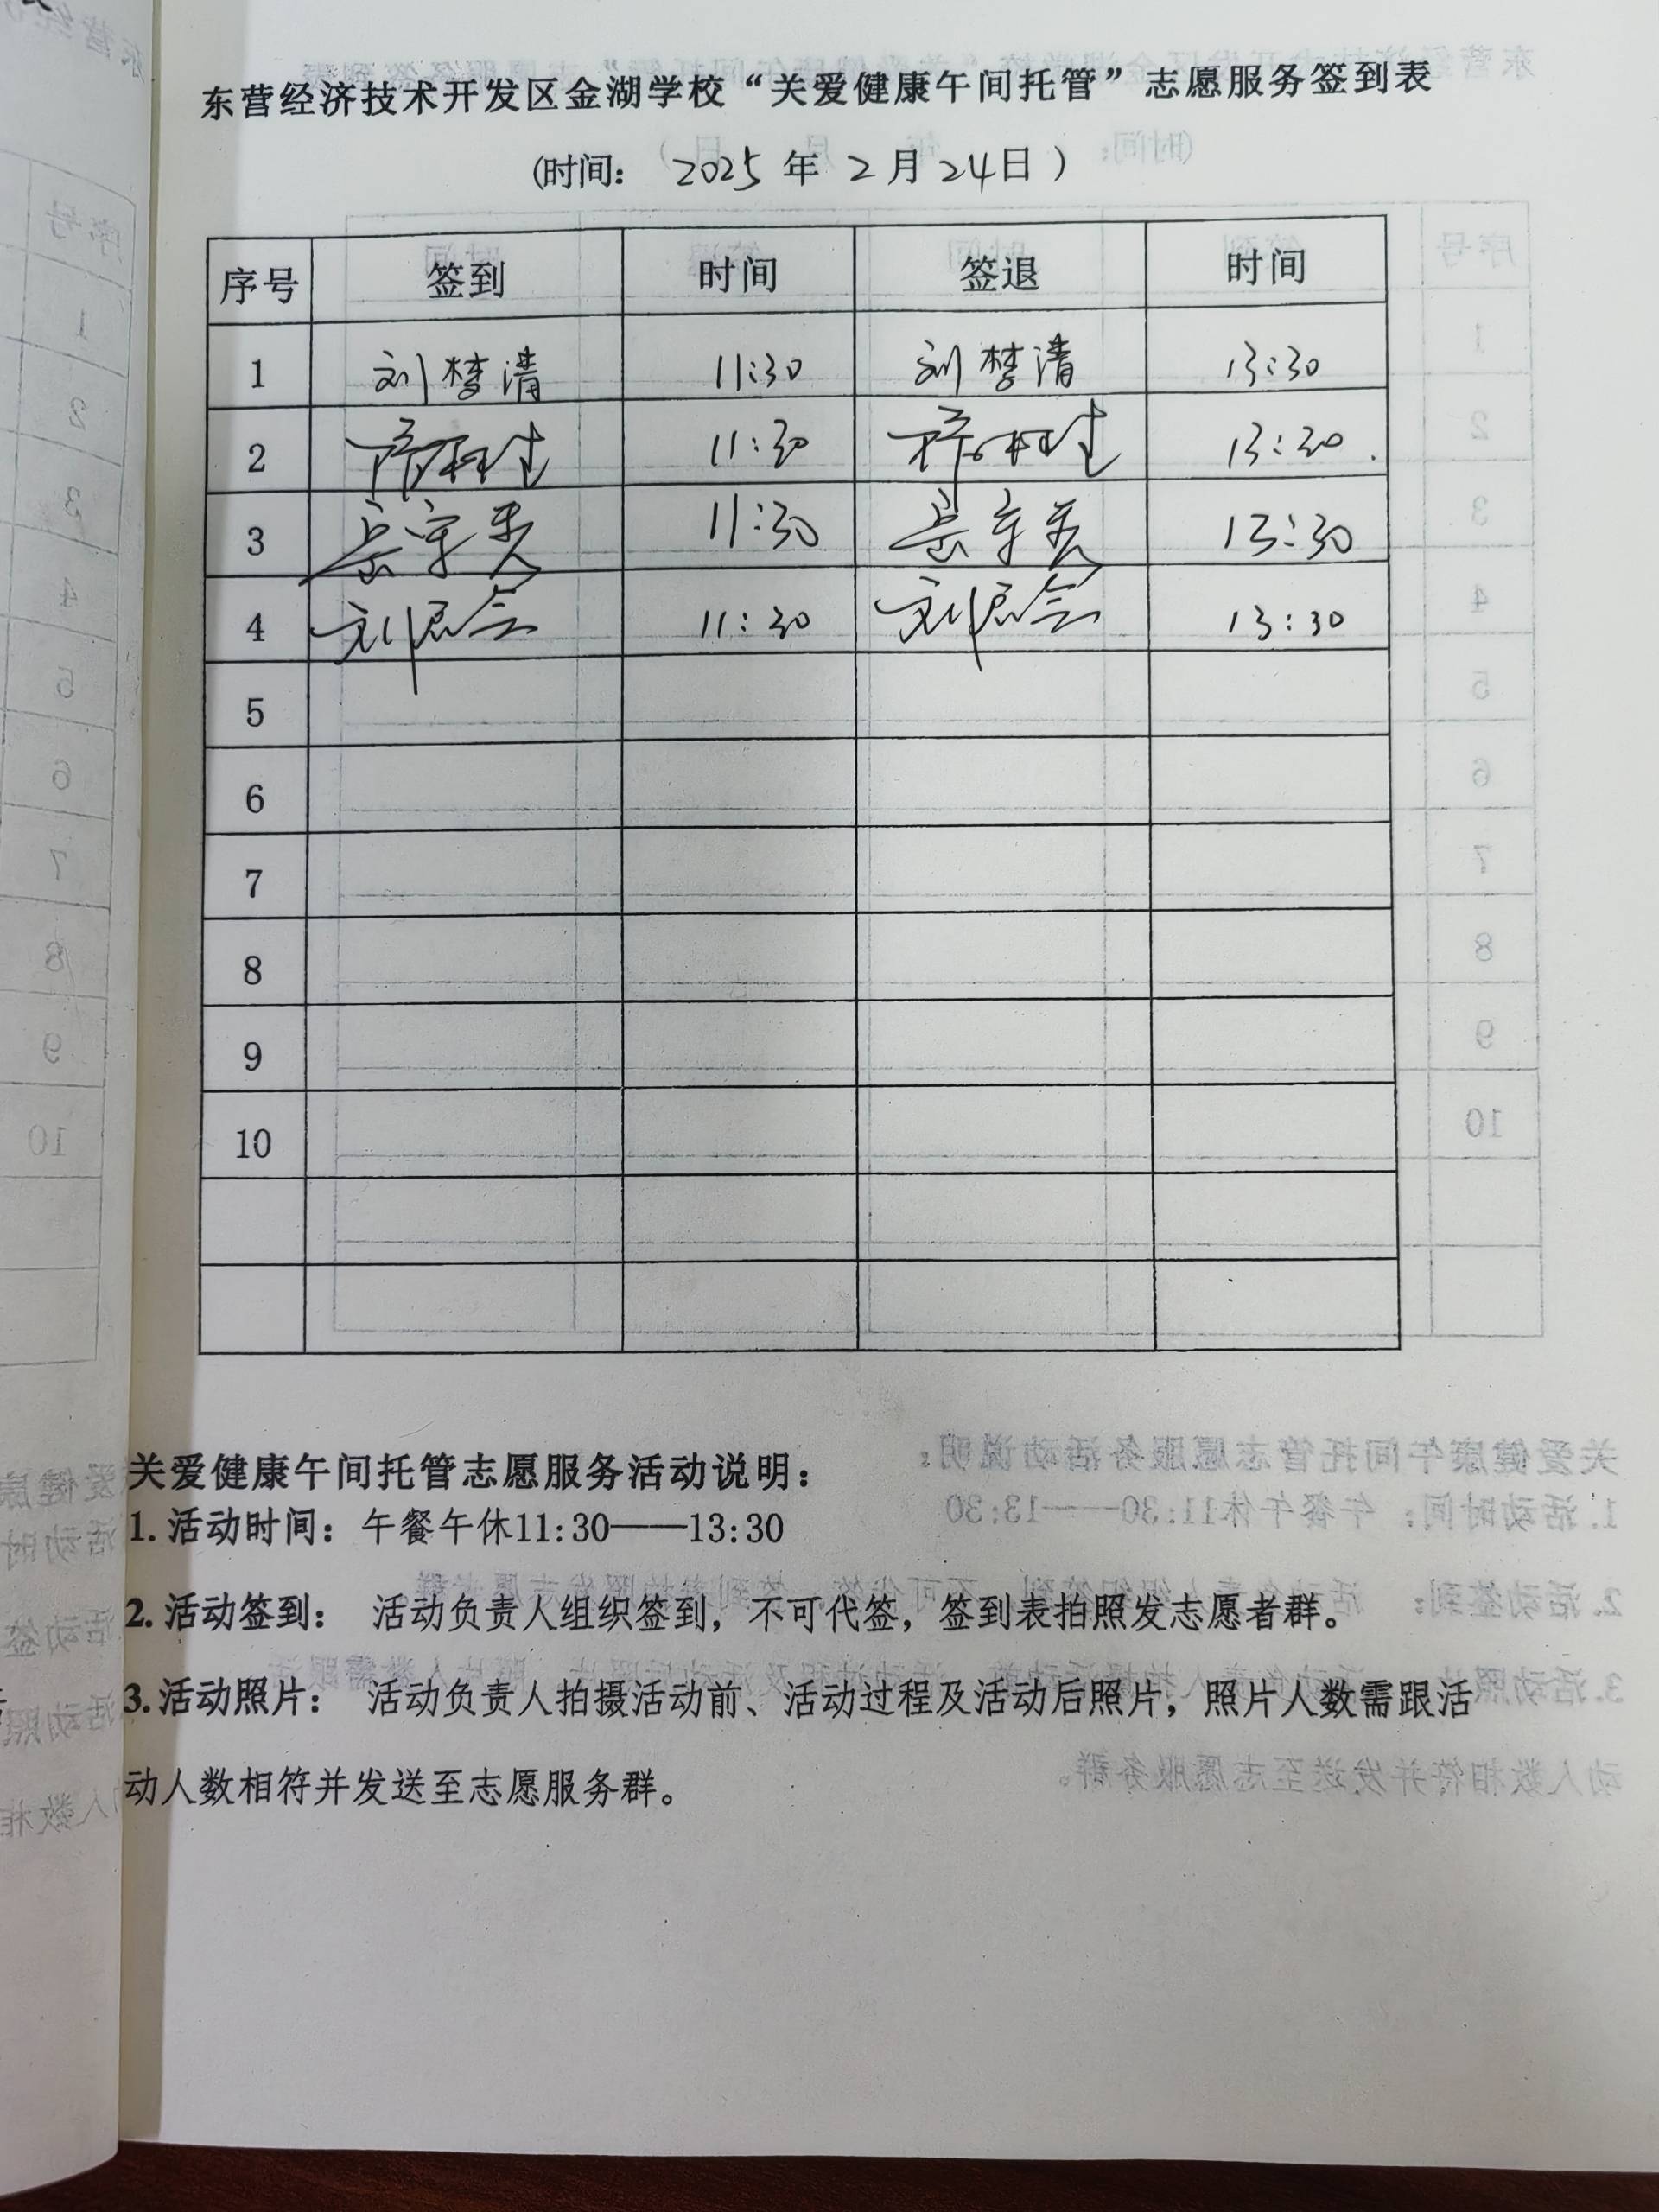 东营经济技术开发区金湖学校“关爱健康午间托管”志愿服务签到表
(时间: 2025 年 2 月 24日 )
序号 签到 时间 签退 时间
1 刘梦清 11:30 刘梦清 13:30
2 11:30 13:30.
3 11:30 13:30
4 11:30 13:30
5
6
7
8
9
10
关爱健康午间托管志愿服务活动说明:
1. 活动时间: 午餐午休11:30——13:30
2. 活动签到: 活动负责人组织签到, 不可代签, 签到表拍照发志愿者群。
3. 活动照片: 活动负责人拍摄活动前、活动过程及活动后照片, 照片人数需跟活
动人数相符并发送至志愿服务群。